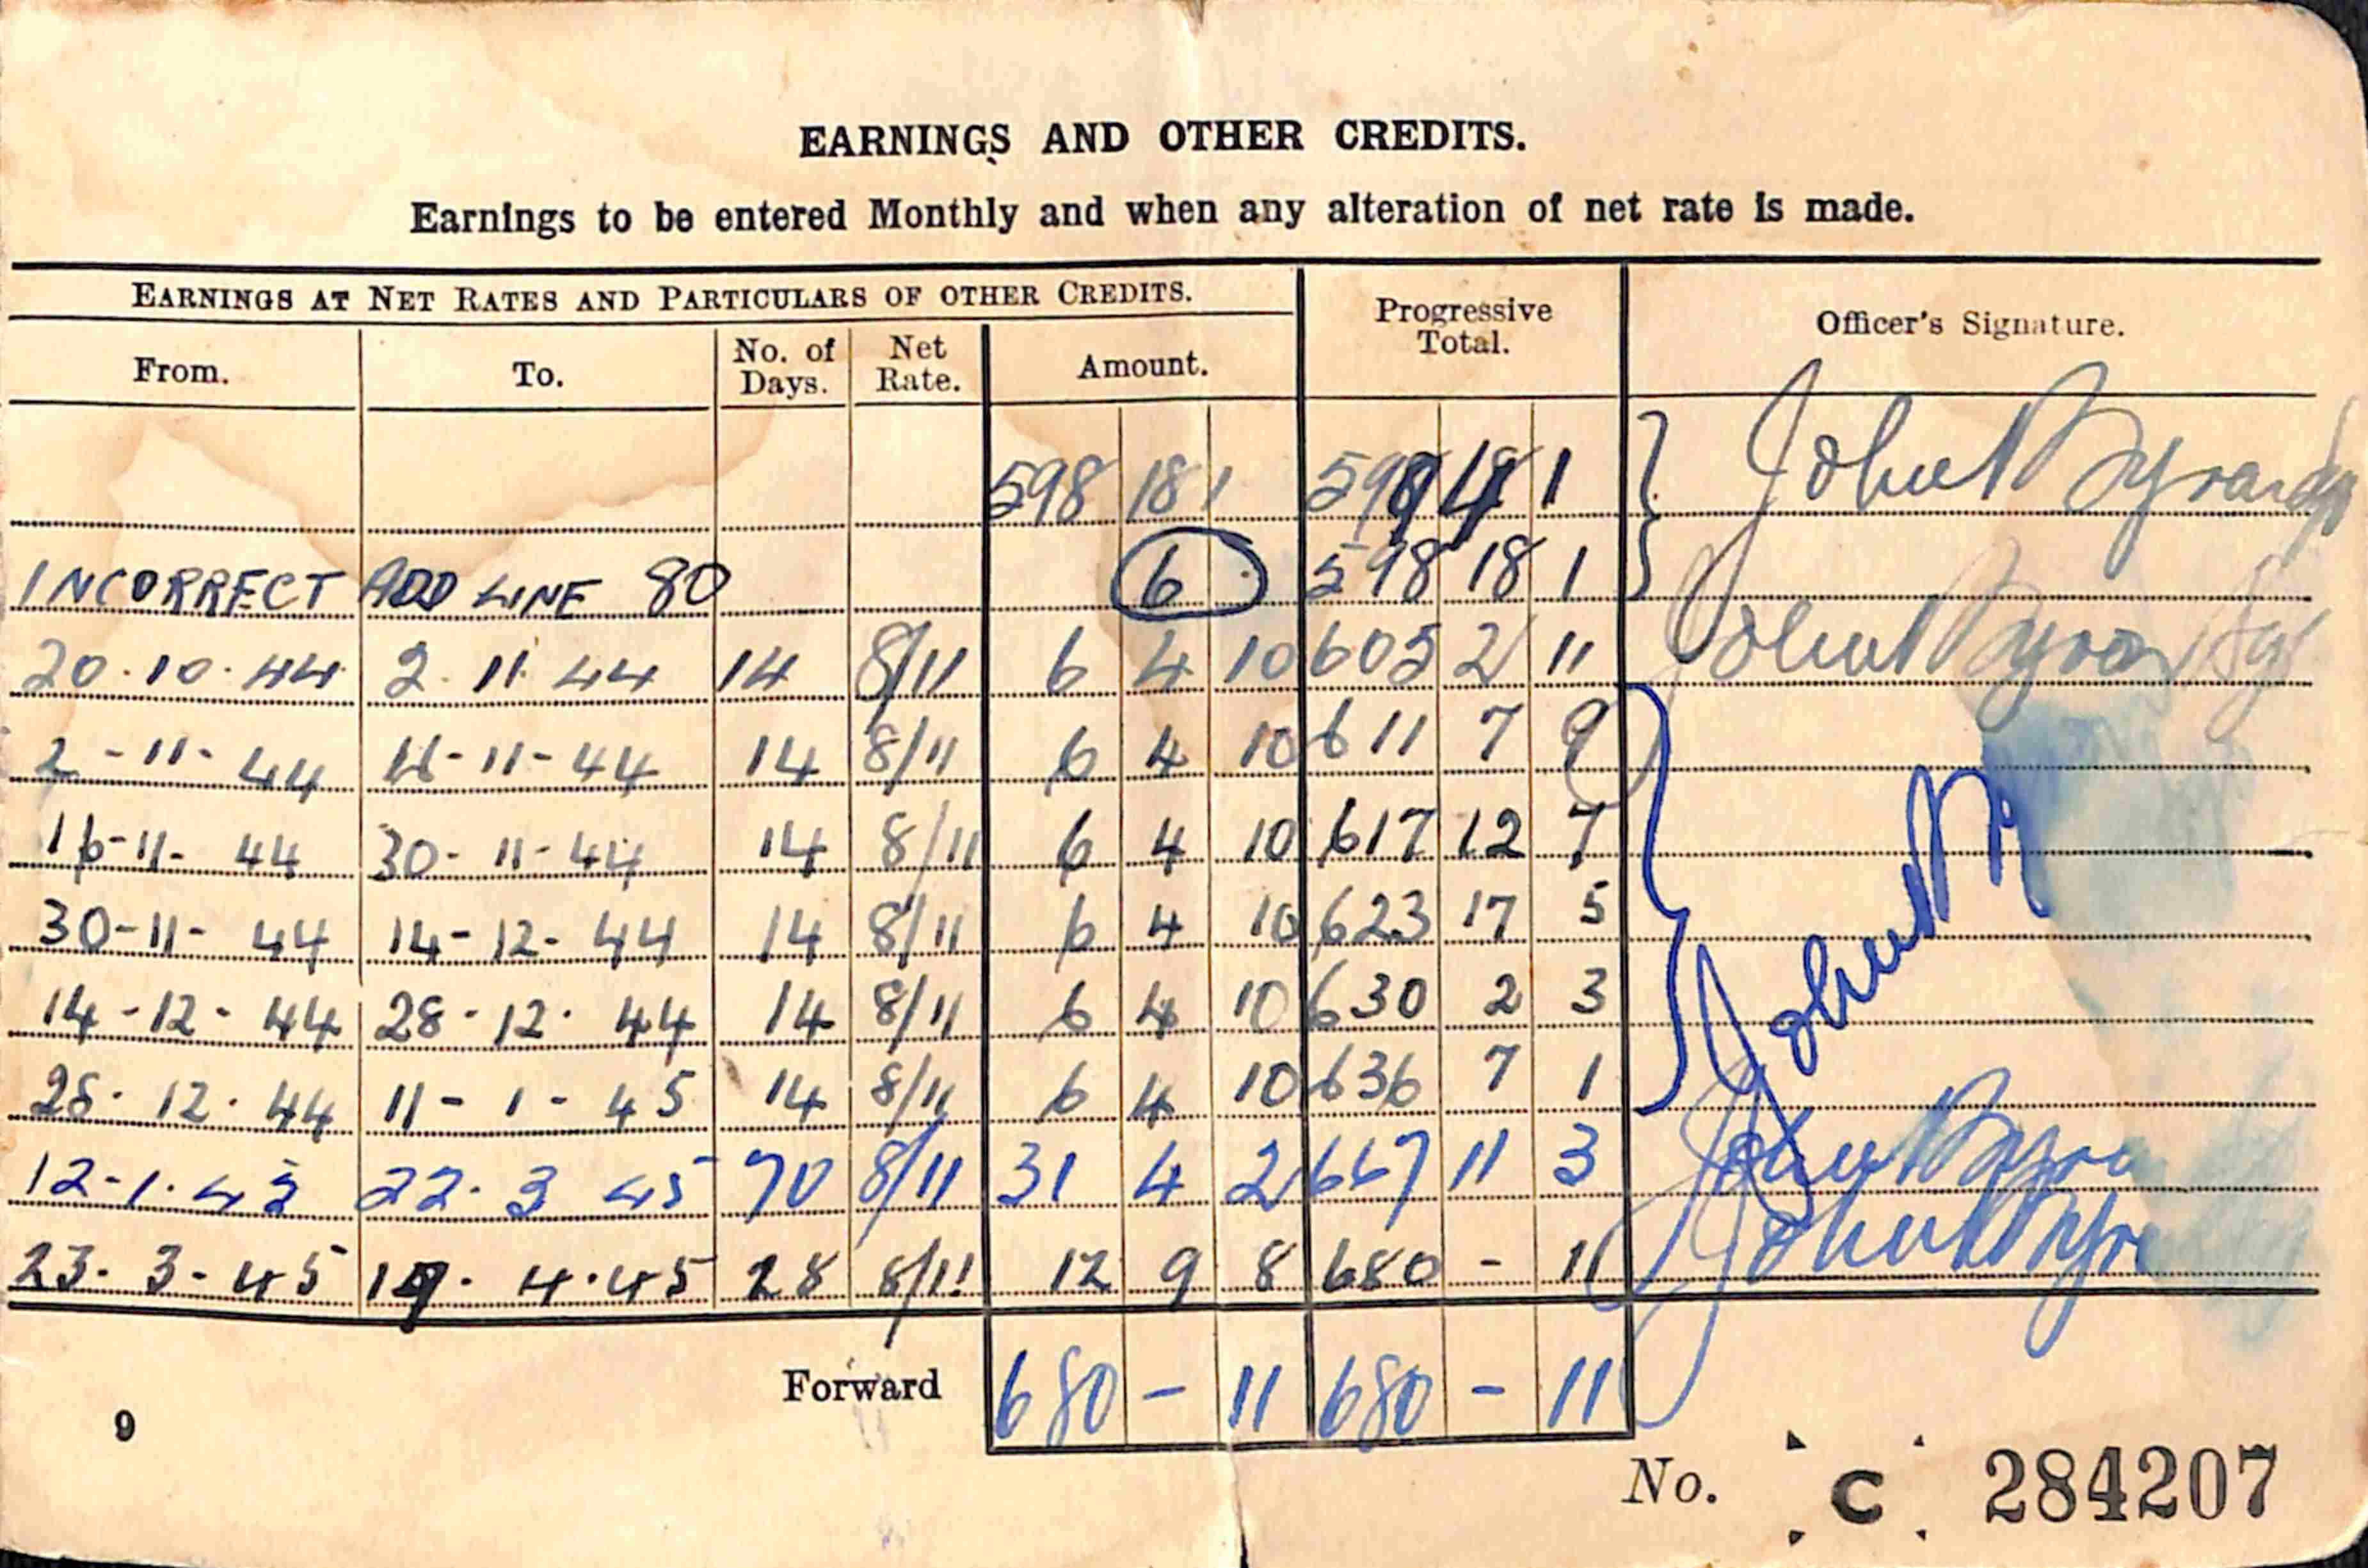 EARNINGS AND OTHER CREDITS.
Earnings to be entered Monthly and when any alteration of net rate is made.
EARNINGS AT NET RATES AND PARTICULARS OF OTHER CREDITS. Progressive Total. Officer's Signature.
From. To. No. of Days. Net Rate. Amount.
598 18 1 1
INCORRECT ADD LINE 80 6 598 18 1
20.10.44 2.11.44 14 8/11 6 4 10 605 2 11
2-11-44 16-11-44 14 8/11 6 4 10 611 7 9
16-11-44 30-11-44 14 8/11 6 4 10 617 12 7
30-11-44 14-12-44 14 8/11 6 4 10 623 17 5
14-12-44 28-12-44 14 8/11 6 4 10 630 2 3
28.12.44 11-1-45 14 8/11 6 4 10 636 7 1
12-1.45 22.3 45 70 8/11 31 4 2 667 11 3
23.3-45 19.4.45 28 8/11 12 9 8 680 - 11
Forward 680 - 11 680 - 11
9
No. C 284207